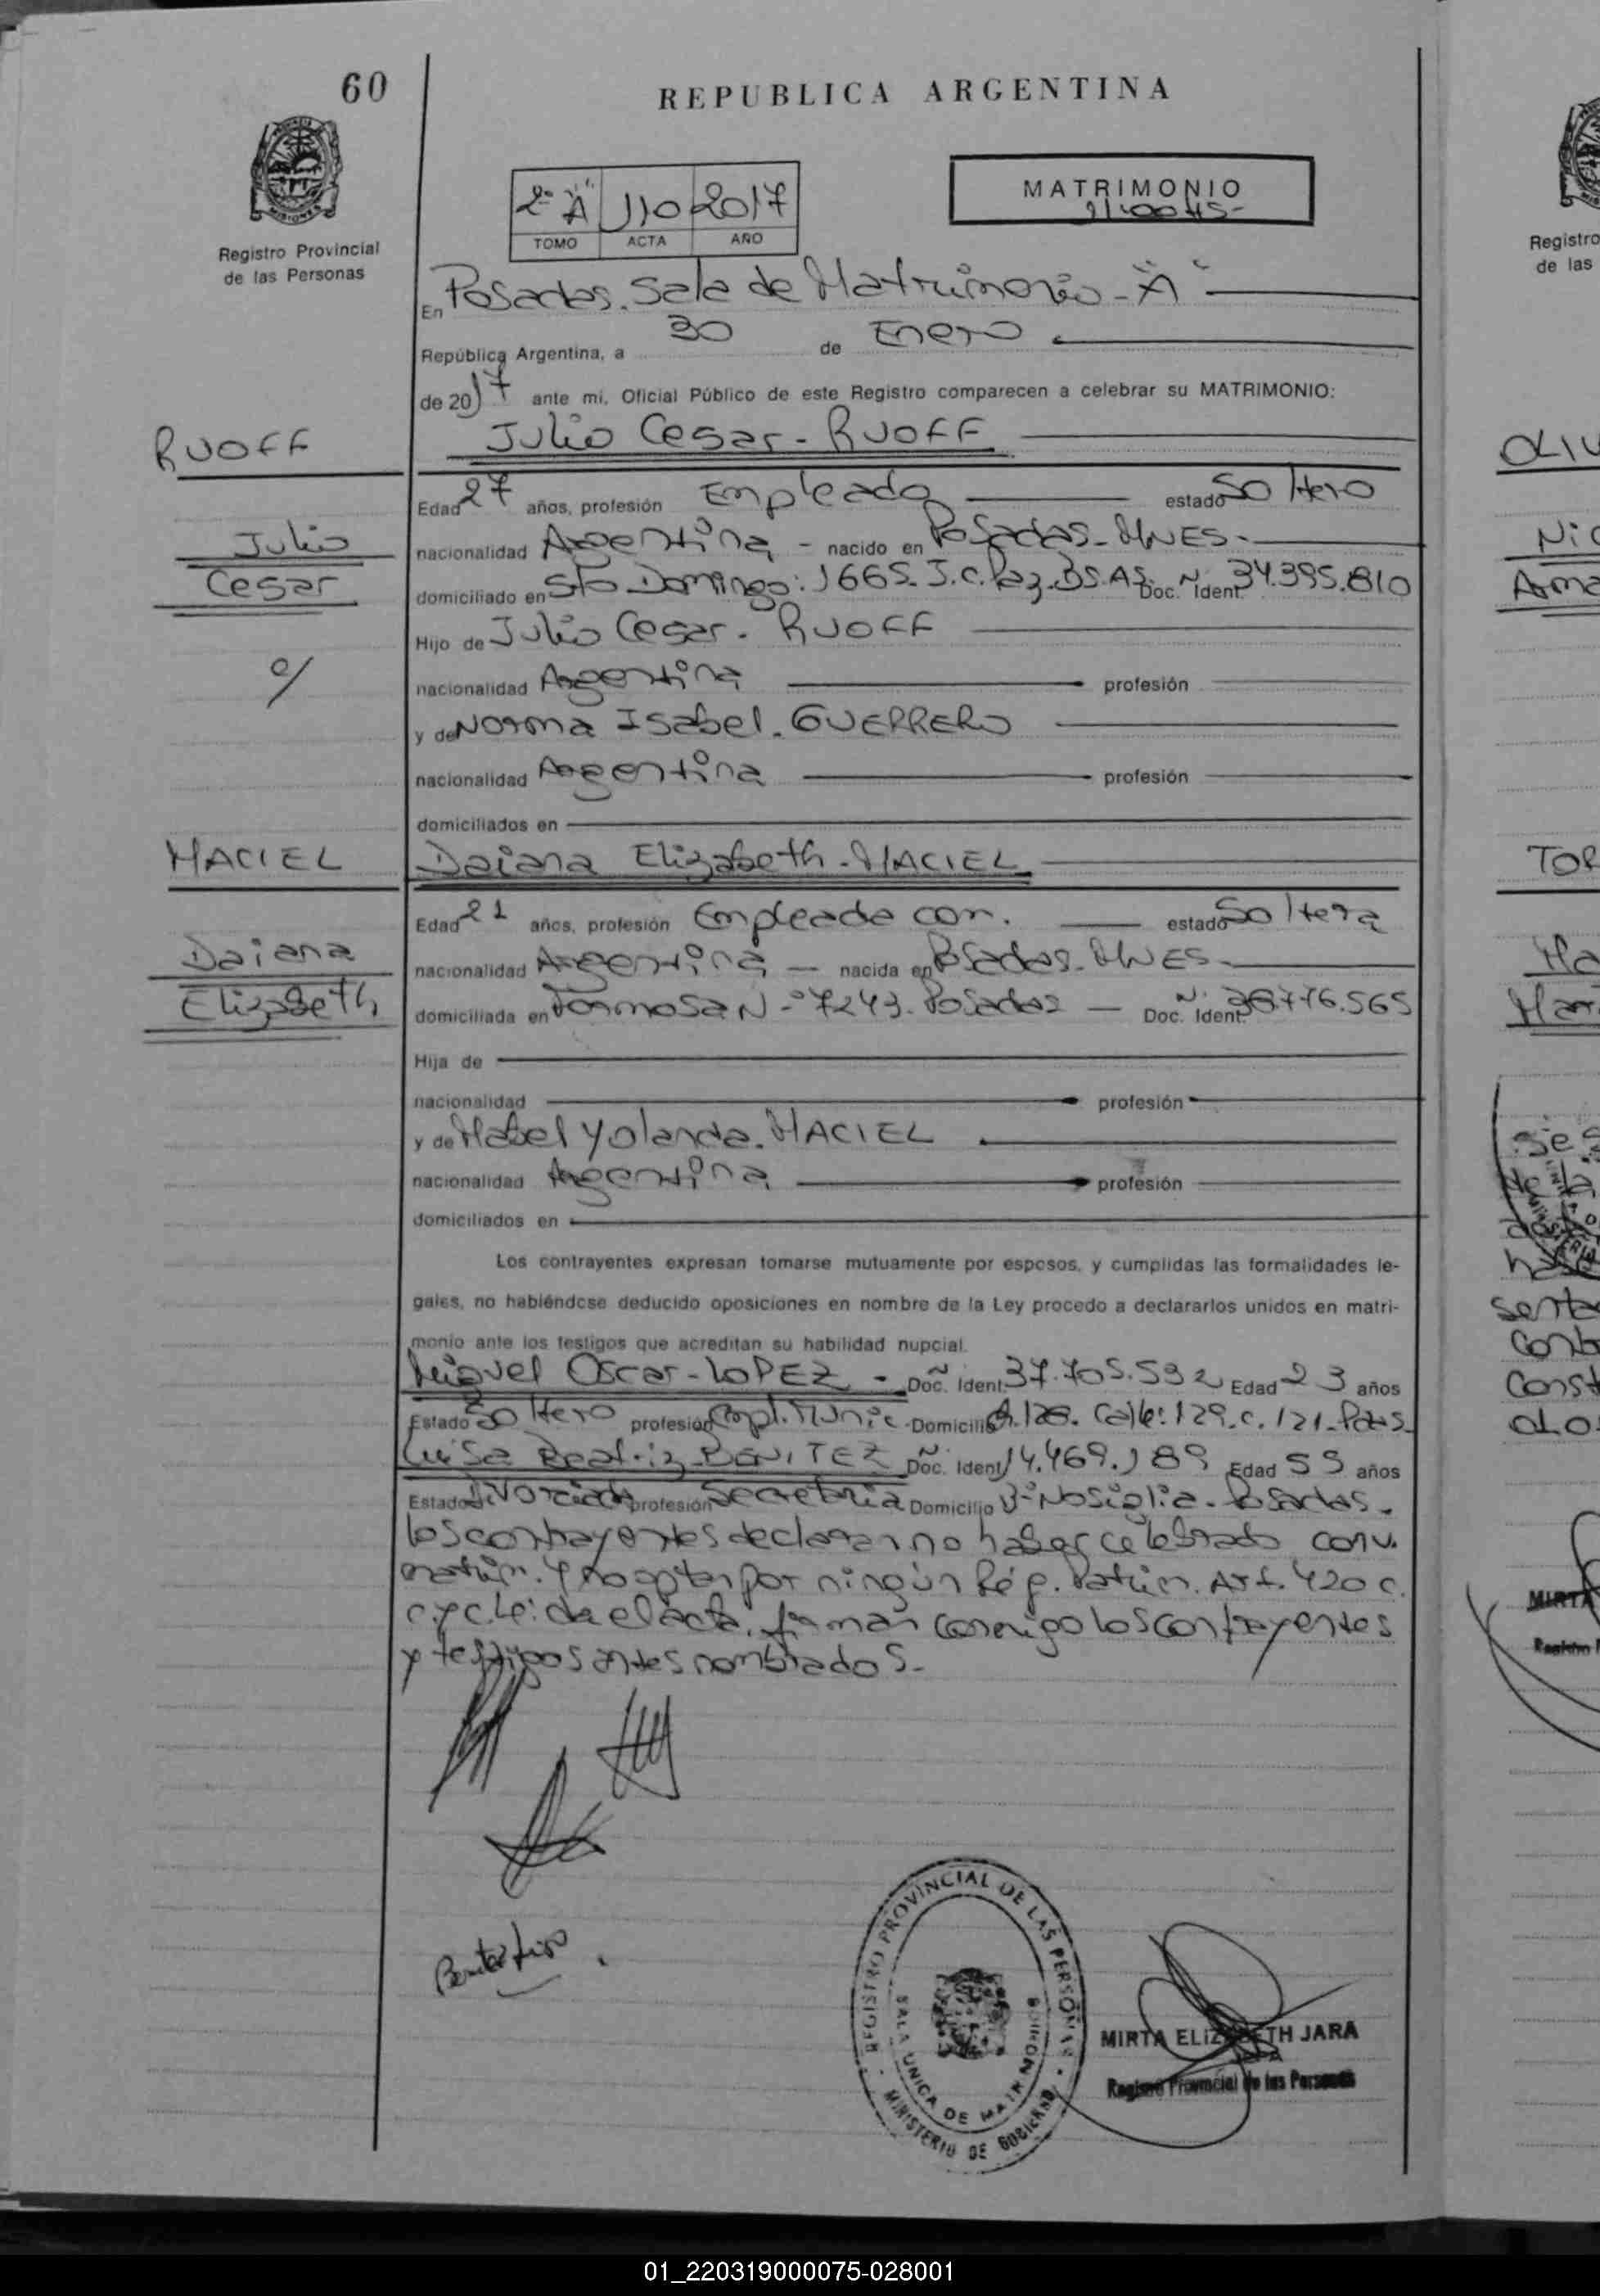 60
REPUBLICA ARGENTINA
PROVINCIA
MISIONES
Registro Provincial
de las Personas
2º "A" 110 2017
TOMO ACTA AÑO
MATRIMONIO
En Posadas. Sala de Matrimonio - "A"
República Argentina, a 30 de Enero
de 2017 ante mi, Oficial Público de este Registro comparecen a celebrar su MATRIMONIO:
RUOFF
Julio Cesar - RUOFF
Edad 27 años, profesión Empleado estado Soltero
Julio
nacionalidad Argentina - nacido en Posadas - MNES.
Cesar
domiciliado en Sto Domingo: 1665. J.C. Paz. BS. AS. Doc. Ident. Nº 34.395.810
Hijo de Julio Cesar. RUOFF
c/
nacionalidad Argentina profesión
y de Norma Isabel. GUERRERO
nacionalidad Argentina profesión
domiciliados en
MACIEL
Daiana Elizabeth - MACIEL
Edad 21 años, profesión Empleada com. estado Soltera
Daiana
nacionalidad Argentina — nacida en Posadas - MNES.
Elizabeth
domiciliada en Formosa N-º 7243. Posadas — Doc. Ident. Nº 38.776.565
Hija de
nacionalidad profesión
y de Mabel Yolanda. MACIEL
nacionalidad Argentina profesión
domiciliados en
Los contrayentes expresan tomarse mutuamente por esposos, y cumplidas las formalidades le-
gales, no habiéndose deducido oposiciones en nombre de la Ley procedo a declararlos unidos en matri-
monio ante los testigos que acreditan su habilidad nupcial.
Miguel Oscar - LOPEZ - Doc. Ident. 37.705.592 Edad 23 años
Estado Soltero profesión Empl. Munic. Domicilio Calle: 129. c. 121. Pdas.
Luisa Beatriz - BENITEZ Doc. Ident. 14.469.189 Edad 55 años
Estado Divorciada profesión Secretaria Domicilio Bº Nosiglia. Posadas.
los contrayentes declaran no haber celebrado conv.
matrim. y no optar por ningún Rég. Patrim. Art. 420 c.
c. y c. Leída el acta, firman conmigo los contrayentes
y testigos antes nombrados.
Benitez Luisa
REGISTRO PROVINCIAL DE LAS PERSONAS
SALA UNICA DE MATRIMONIOS
MINISTERIO DE GOBIERNO
MIRTA ELIZABETH JARA
Registro Provincial de las Personas
Registro
de las
OLIV
Nic
Arma
TOR
Ma
Mar
Se s
senta
Const
MIRTA
01_220319000075-028001